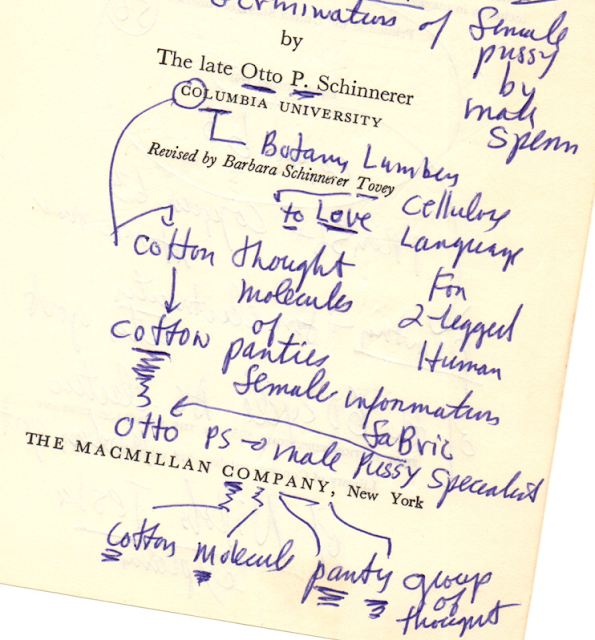 Germination of Female
pussy
by
male
Sperm
by
The late Otto P. Schinnerer
COLUMBIA UNIVERSITY
Botany Lumber
Revised by Barbara Schinnerer Tovey
to Love
Cellulose
Language
For
2-legged
Human
cotton thought
molecules
of
panties
cotton
Female information
FaBric
Otto PS → male Pussy Specialist
THE MACMILLAN COMPANY, New York
cotton molecule panty group
of
thought